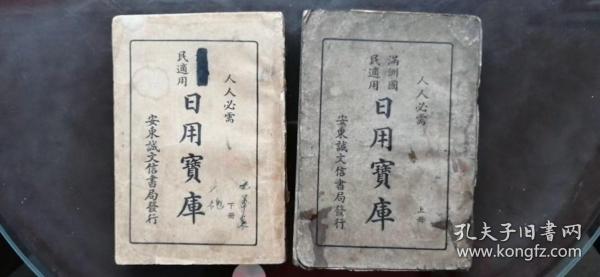 人人必需
民適用
日用寶庫
下冊
安東誠文信書局發行
人人必需
滿洲國
民適用
日用寶庫
上冊
安東誠文信書局發行
孔夫子旧书网
kongfz.com